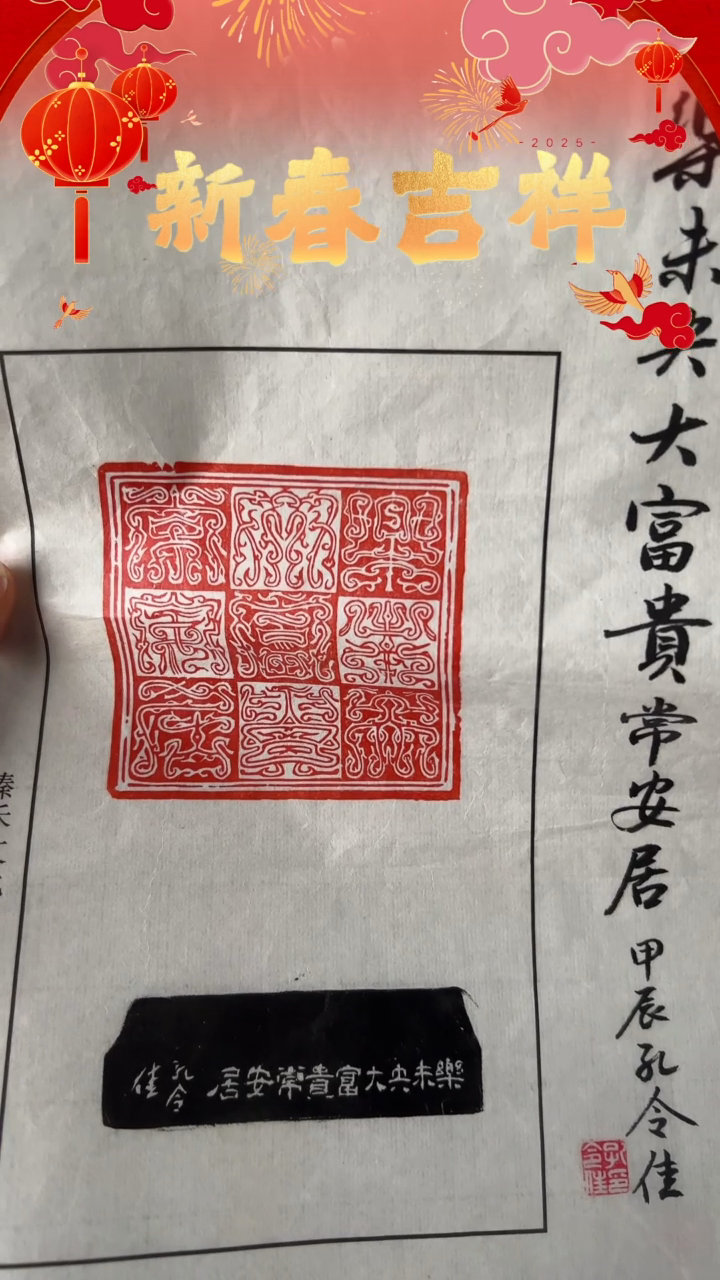 -2025-
新春吉祥
樂未央大富貴常安居
甲辰孔令佳
孔令佳印
樂未央
大富貴
常安居
樂未央大富貴常安居
孔令佳